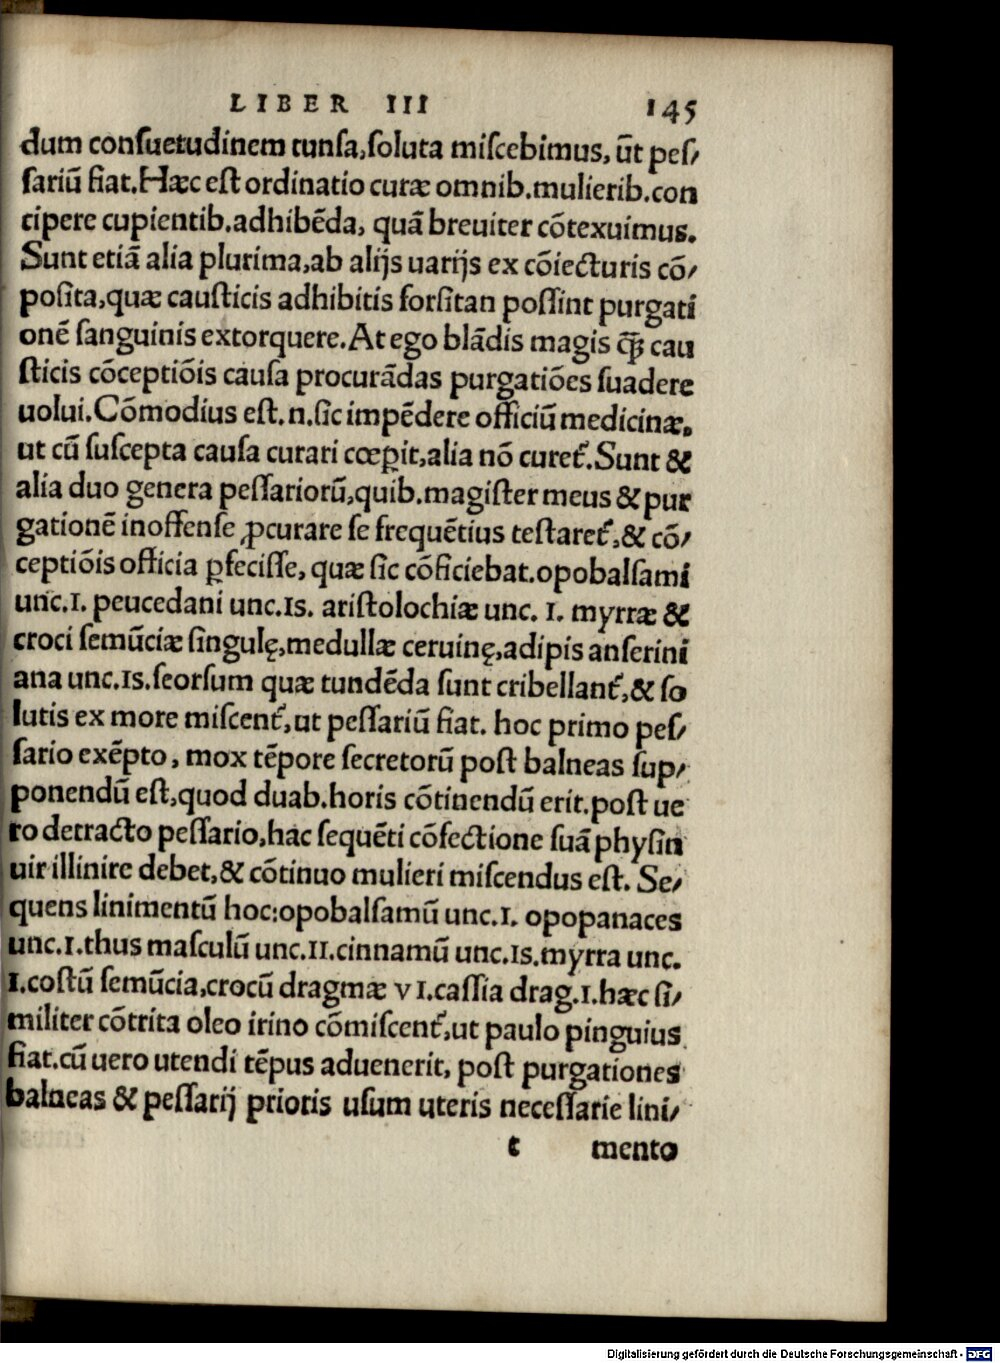 LIBER III 145
dum conſuetudinem tunſa,ſoluta miſcebimus, ūt peſ/
ſariū fiat.Hæc eſt ordinatio curæ omnib.mulierib.con
cipere cupientib.adhibēda, quā breuiter cōtexuimus.
Sunt etiā alia plurima,ab alijs uarijs ex cōiecturis cō/
poſita,quæ cauſticis adhibitis forſitan poſſint purgati
onē ſanguinis extorquere.At ego blādis magis q̄ꝫ cau
ſticis cōceptiōis cauſa procurādas purgatiōes ſuadere
uolui.Cōmodius eſt.n.ſic impēdere officiū medicinæ.
ut cū ſuſcepta cauſa curari cœꝑit,alia nō curet᷑.Sunt &
alia duo genera peſſariorū,quib.magiſter meus & pur
gationē inoffenſe ꝓcurare ſe frequētius teſtaret᷑,& cō/
ceptiōis officia ꝑfeciſſe, quæ ſic cōficiebat.opobalſami
unc.I. peucedani unc.IS. ariſtolochiæ unc. I. myrræ &
croci ſemūciæ ſingulę,medullæ ceruinę,adipis anſerini
ana unc.IS.ſeorſum quæ tundēda ſunt cribellant᷑,& ſo
lutis ex more miſcent᷑,ut peſſariū fiat. hoc primo peſ/
ſario exēpto, mox tēpore ſecretorū poſt balneas ſup/
ponendū eſt,quod duab.horis cōtinendū erit.poſt ue
ro detracto peſſario,hac ſequēti cōfectione ſuā phyſin
uir illinire debet,& cōtinuo mulieri miſcendus eſt. Se/
quens linimentū hoc:opobalſamū unc.I. opopanaces
unc.I.thus maſculū unc.II.cinnamū unc.IS.myrra unc.
I.coſtū ſemūcia,crocū dragmæ VI.caſſia drag.I.hæc ſi/
militer cōtrita oleo irino cōmiſcent᷑,ut paulo pinguius
fiat.cū uero utendi tēpus aduenerit, poſt purgationes
balneas & peſſarij prioris uſum uteris neceſſarie lini/
t mento
Digitalisierung gefördert durch die Deutsche Forschungsgemeinschaft - DFG